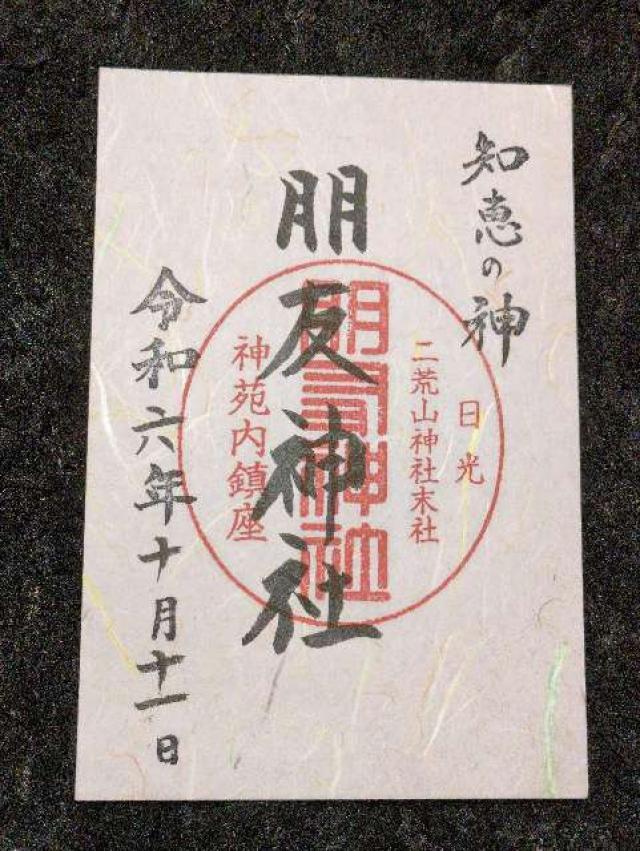 知恵の神
日光
二荒山神社末社
朋友神社
朋友神社
神苑内鎮座
令和六年十月十一日